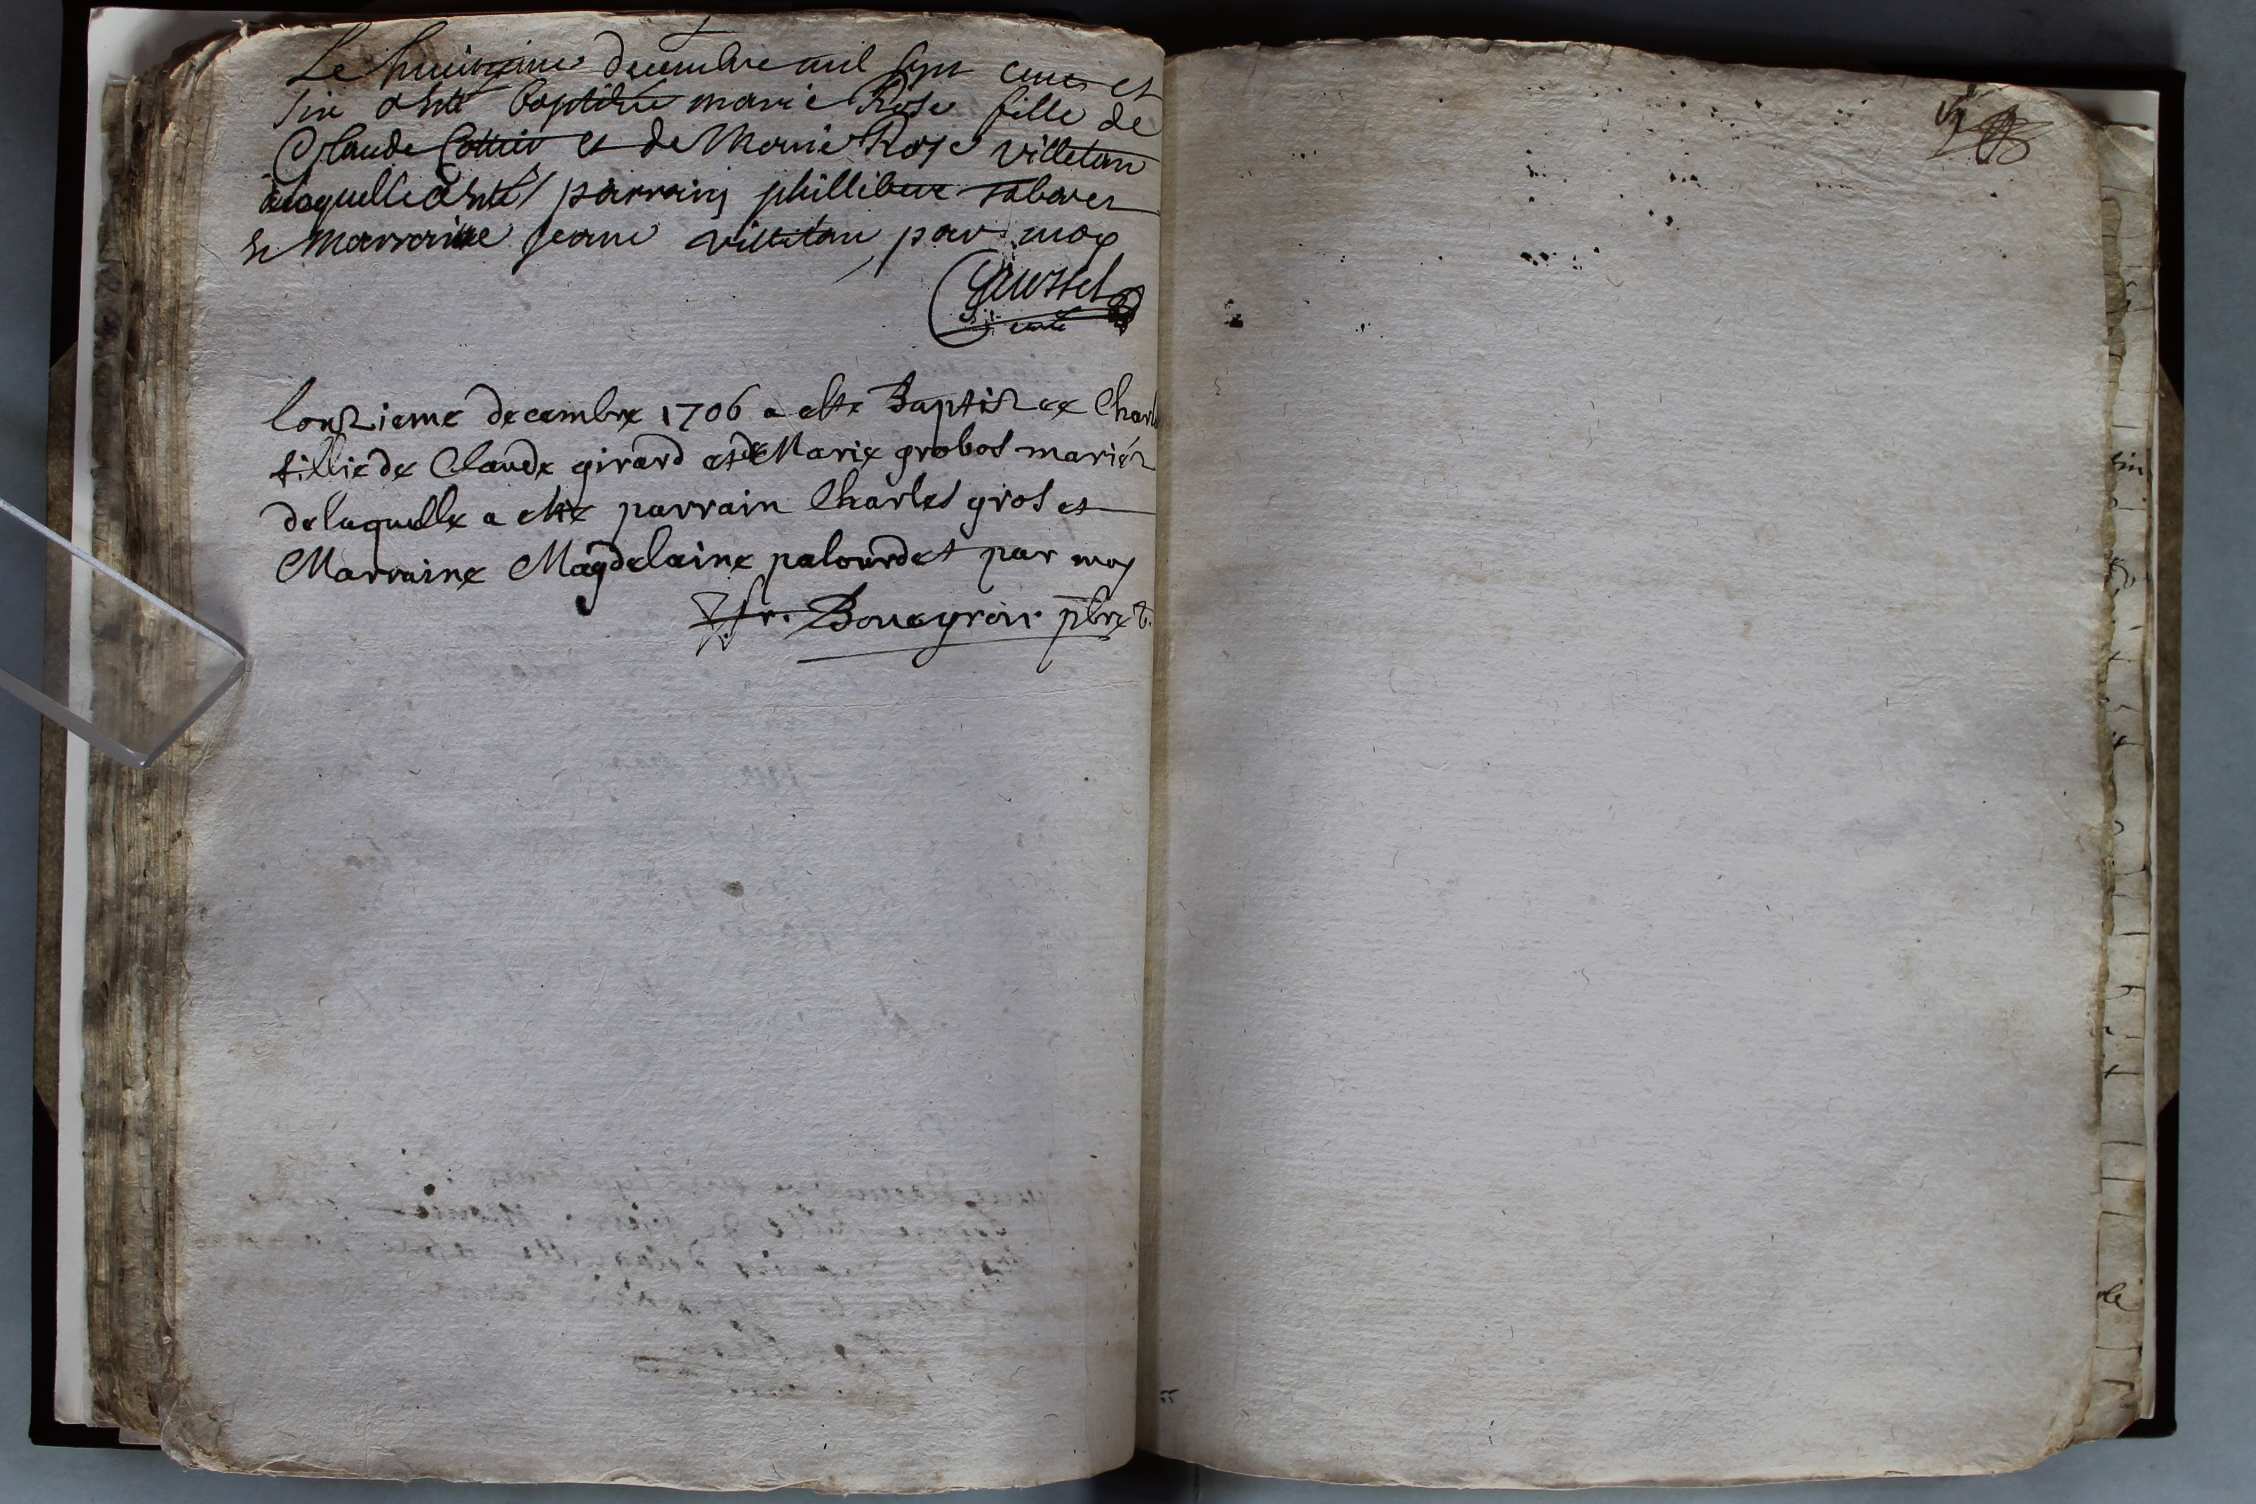 Le huictieme decembre mil sept cens et
six a esté baptisée marie Rose fille de
Claude Cottier et de Marie Rose villetan
a laquelle a esté parrain phillibert
et marraine jeane villetan par moy
curé
lonzieme decembre 1706 a este Baptizee Charle
fillie de Claude girard et de Marie grobos mariés
de laquelle a este parrain Charles gros et
Marraine Magdelaine palourdet par moy
fr. Boueyron pbre